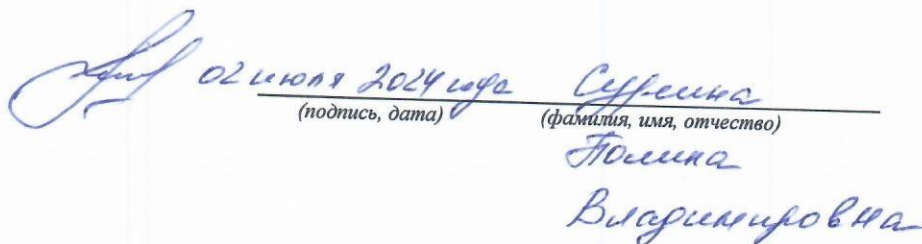 02 июля 2024 года Сурмина
(подпись, дата) (фамилия, имя, отчество)
Полина
Владимировна